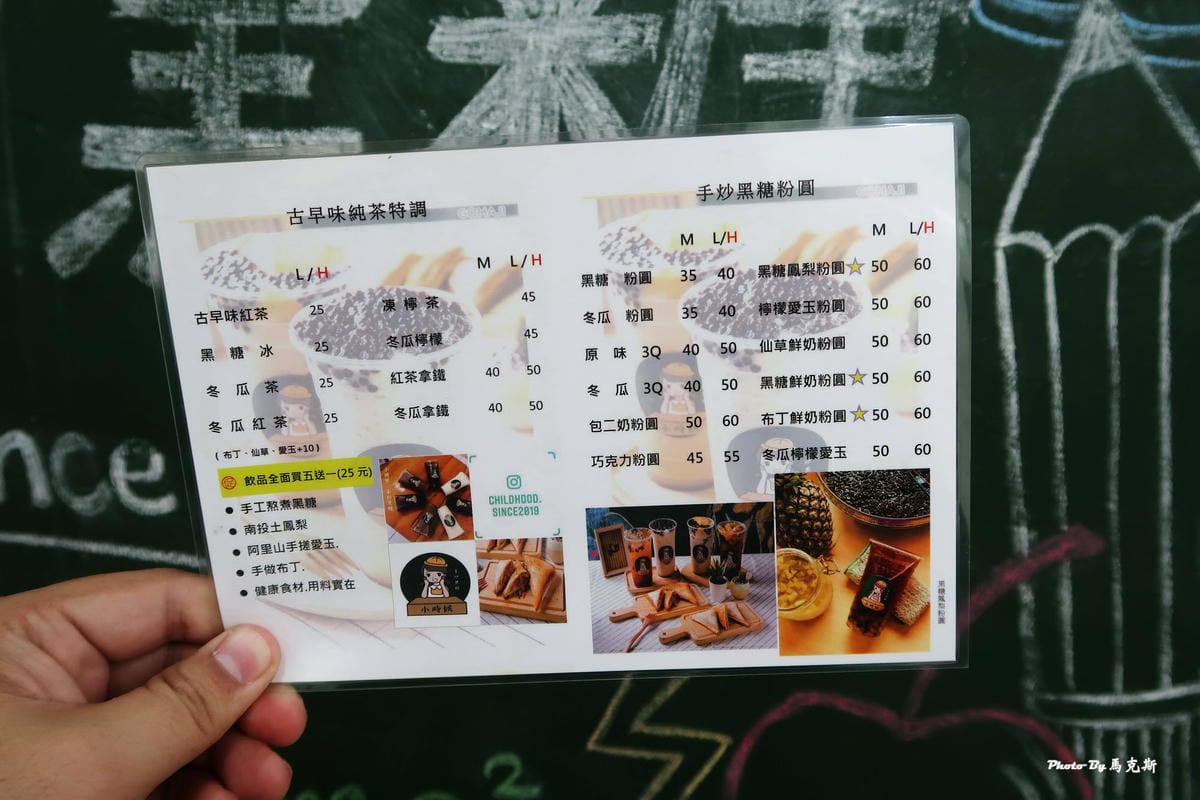 nce
古早味純茶特調
L/H
古早味紅茶 25
黑糖冰 25
冬瓜茶 25
冬瓜紅茶 25
(布丁·仙草·愛玉+10)
M L/H
凍檸茶 45
冬瓜檸檬 45
紅茶拿鐵 40 50
冬瓜拿鐵 40 50
飲品全面買五送一(25元)
• 手工熬煮黑糖
• 南投土鳳梨
• 阿里山手搓愛玉.
• 手做布丁.
• 健康食材,用料實在
CHILDHOOD.
SINCE2019
小時候
手炒黑糖粉圓
M L/H
黑糖 粉圓 35 40
冬瓜 粉圓 35 40
原味 3Q 40 50
冬瓜 3Q 40 50
包二奶粉圓 50 60
巧克力粉圓 45 55
M L/H
黑糖鳳梨粉圓 50 60
檸檬愛玉粉圓 50 60
仙草鮮奶粉圓 50 60
黑糖鮮奶粉圓 50 60
布丁鮮奶粉圓 50 60
冬瓜檸檬愛玉 50 60
黑糖鳳梨粉圓
2
Photo By 馬克斯